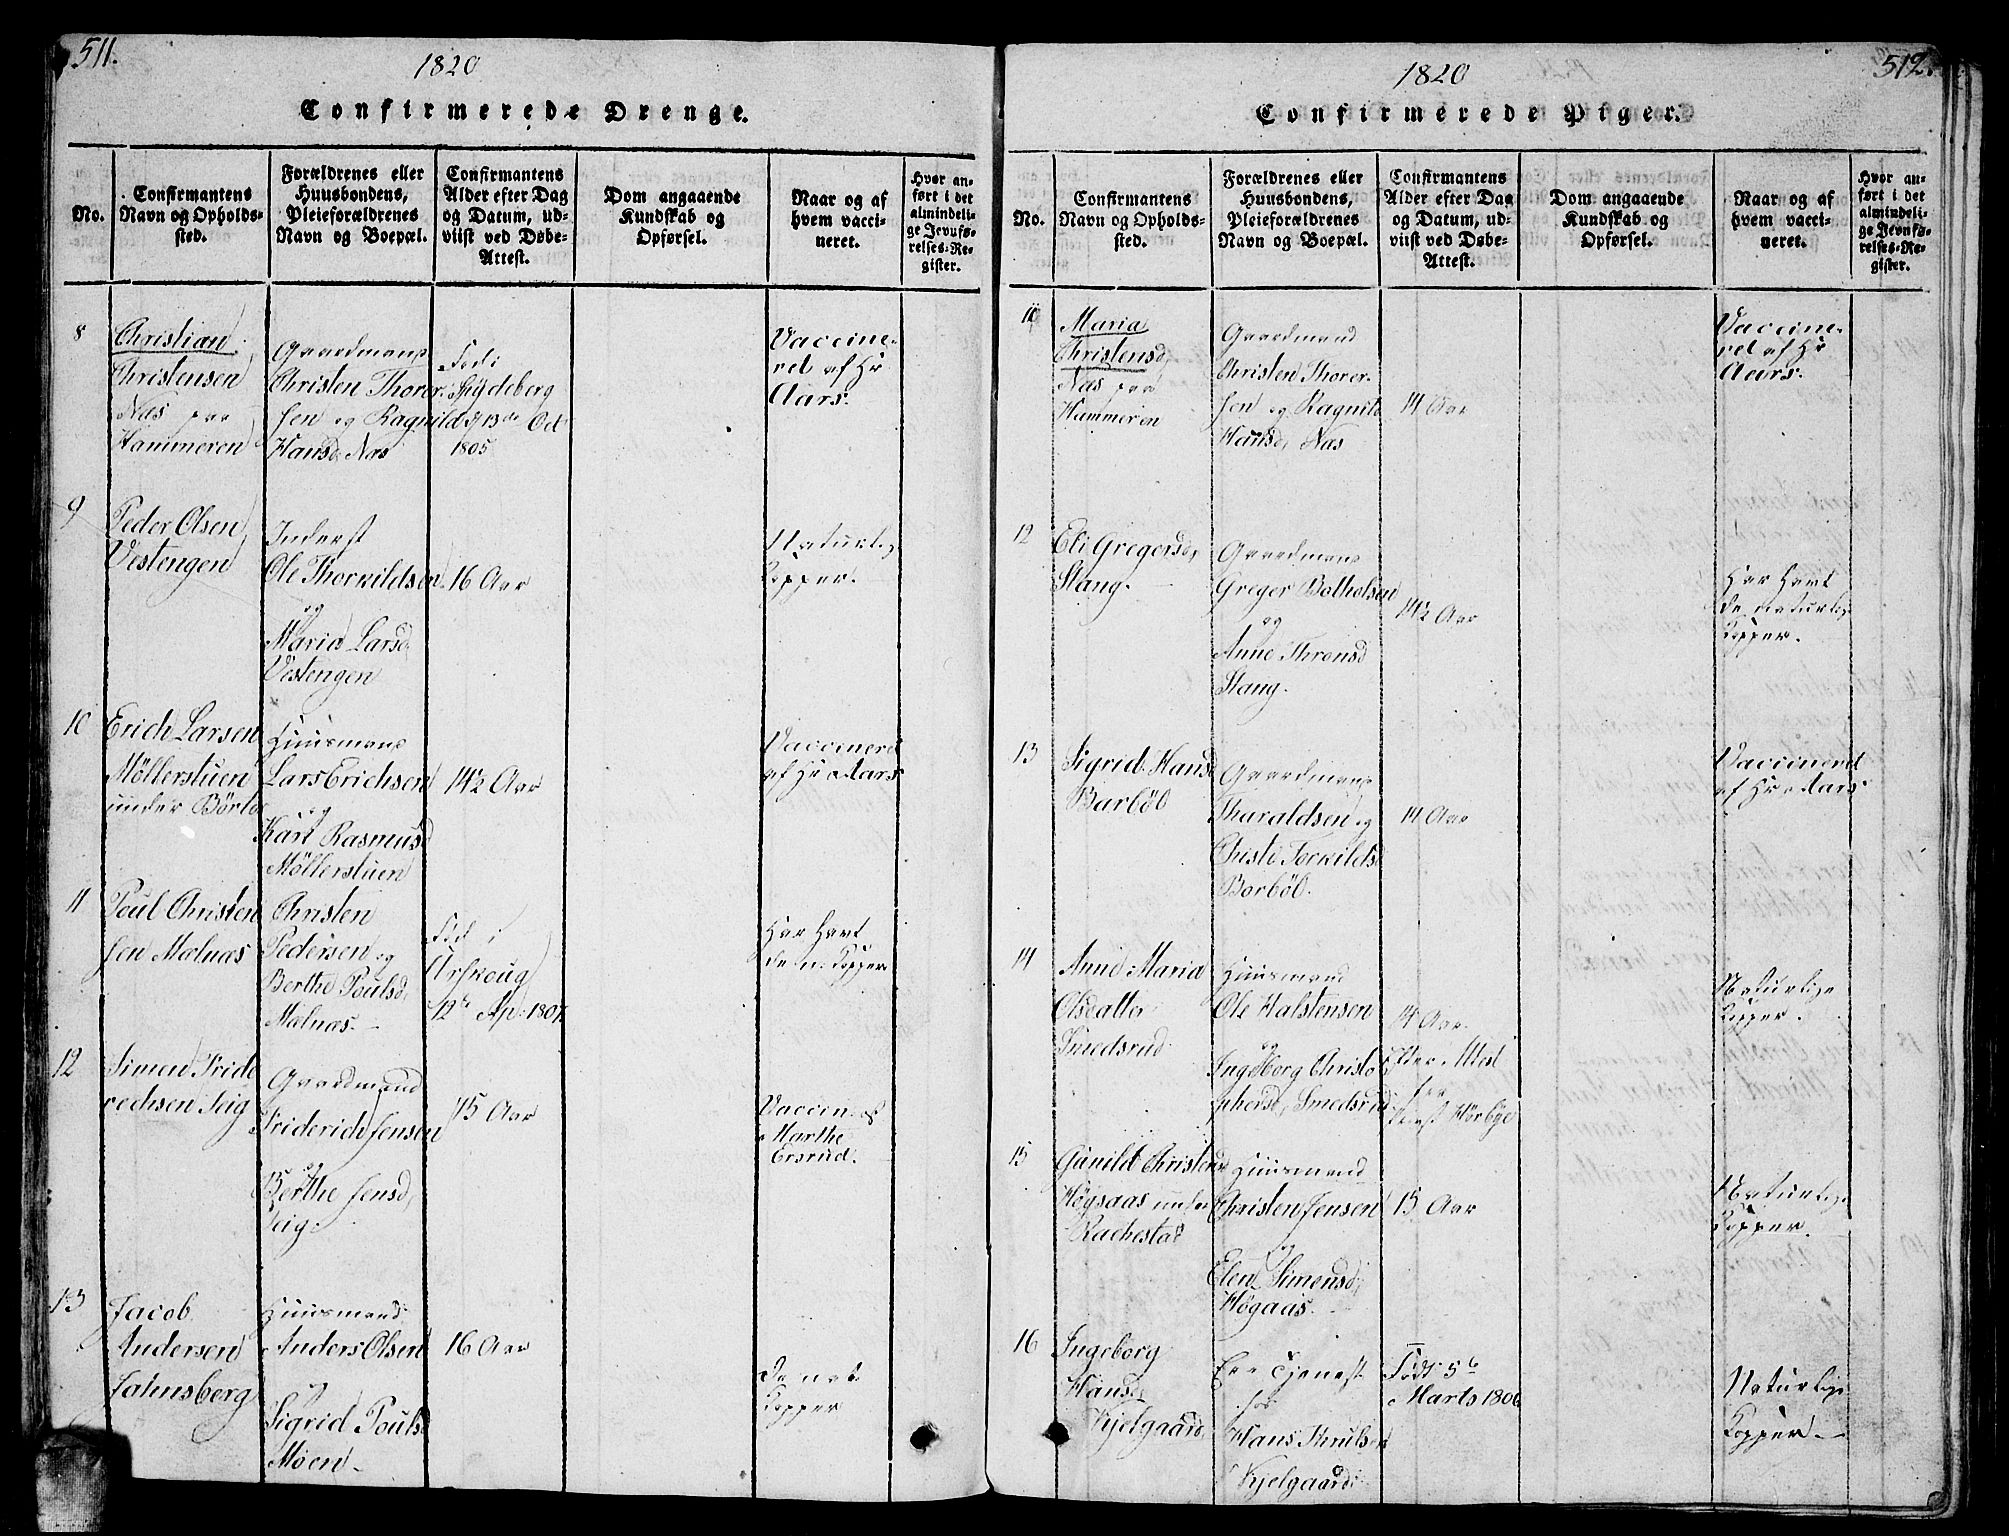 511.
1820
Confirmerede Drenge.
No.
Confirmantens
Navn og Opholds-
sted.
Forældrenes eller
Huusbondens,
Pleieforældrenes
Navn og Boepæl.
Confirmantens
Alder efter Dag
og Datum, ud-
viist ved Døbe-
Attest.
Dom angaaende
Kundskab og
Opførsel.
Naar og af
hvem vacci-
neret.
Hvor an-
ført i det
almindeli-
ge Jevnfø-
relses-Re-
gister.
8
Christian
Christensen
Næs paa
Hammeren
Gaardmand
Christen Thorer-
sen og Ragnild
Hansd. Næs
Fød i
Spydeberg
d. 13de Oct
1805
Vaccine-
ret af Hr
Aars.
9
Peder Olsen
Vestengen
Inderst
Ole Thorkildsen
og
Maria Larsd.
Vestengen
16 Aar
Naturlig
Kopper.
10
Erich Larsen
Möllerstuen
under Börböl
Huusmand
Lars Erichsen
og
Kari Rasmusd
Möllerstuen
14½ Aar
Vaccinerd
af Hr Aars
11
Poul Christen
sen Mælnæs
Christen
Pedersen og
Berthe Poulsd.
Mælnæs.
Fød i
Urskoug
12te Ap: 1807.
Har havt
de n: Kopper
12
Simen Fride
rechsen Teig
Gaardmand
Friderich Jensen
og
Berthe Jensd,
Teig.
15 Aar
Vaccin. af
Marthe
Ersrud.
13
Jacob
Andersen
Jahnsberg
Huusmand
Anders Olsen
og
Sigrid Poulsd
Moen
16 Aar
de nat.
Kopper
512.
1820
Confirmerede Piger.
No.
Confirmantens
Navn og Opholds-
sted.
Forældrenes eller
Huusbondens,
Pleieforældrenes
Navn og Boepæl.
Confirmantens
Alder efter Dag
og Datum, ud-
viist ved Døbe-
Attest.
Dom angaaende
Kundskab og
Opførsel.
Naar og af
hvem vacci-
neret.
Hvor an-
ført i det
almindeli-
ge Jevnfø-
relses-Re-
gister.
11
Maria
Christensd,
Næs paa
Hammeren
Gaardmand
Christen Thorer-
sen og Ragnild
Hansd, Næs
14 Aar
Vaccine-
ret af Hr
Aars.
12
Eli Gregersd,
Stang.
Gaardmand
Greger Botholsen
og
Anne Thronsd
Stang.
14½ Aar
Har havt
de naturlig
Kopper.
13
Sigrid Hansd
Barböl
Gaardmand
Tharaldsen og
Christi Torkildsd
Borböl.
14 Aar
Vaccinerd
af Hr Aars
14
Anne Maria
Olsdatter
Smedsrud
Huusmand
Ole Halstensen
og
Ingeborg Christo
phersd, Smedsrud
14 Aar.
efter Attest
fra
Hörbye
Naturlige
Kopper.
15
Gunild Christensd
Högsaas under
Rachestad
Huusmand
Christen Jensen
og
Elen Simensd,
Högaas.
15 Aar
Naturlige
Kopper.
16
Ingeborg
Hansd,
Kjelgaard,
Er i Tjeneste
hos
Hans Thrulsen
Kjelgaard.
Født 5te
Marts 1806
Naturlige
Kopper.